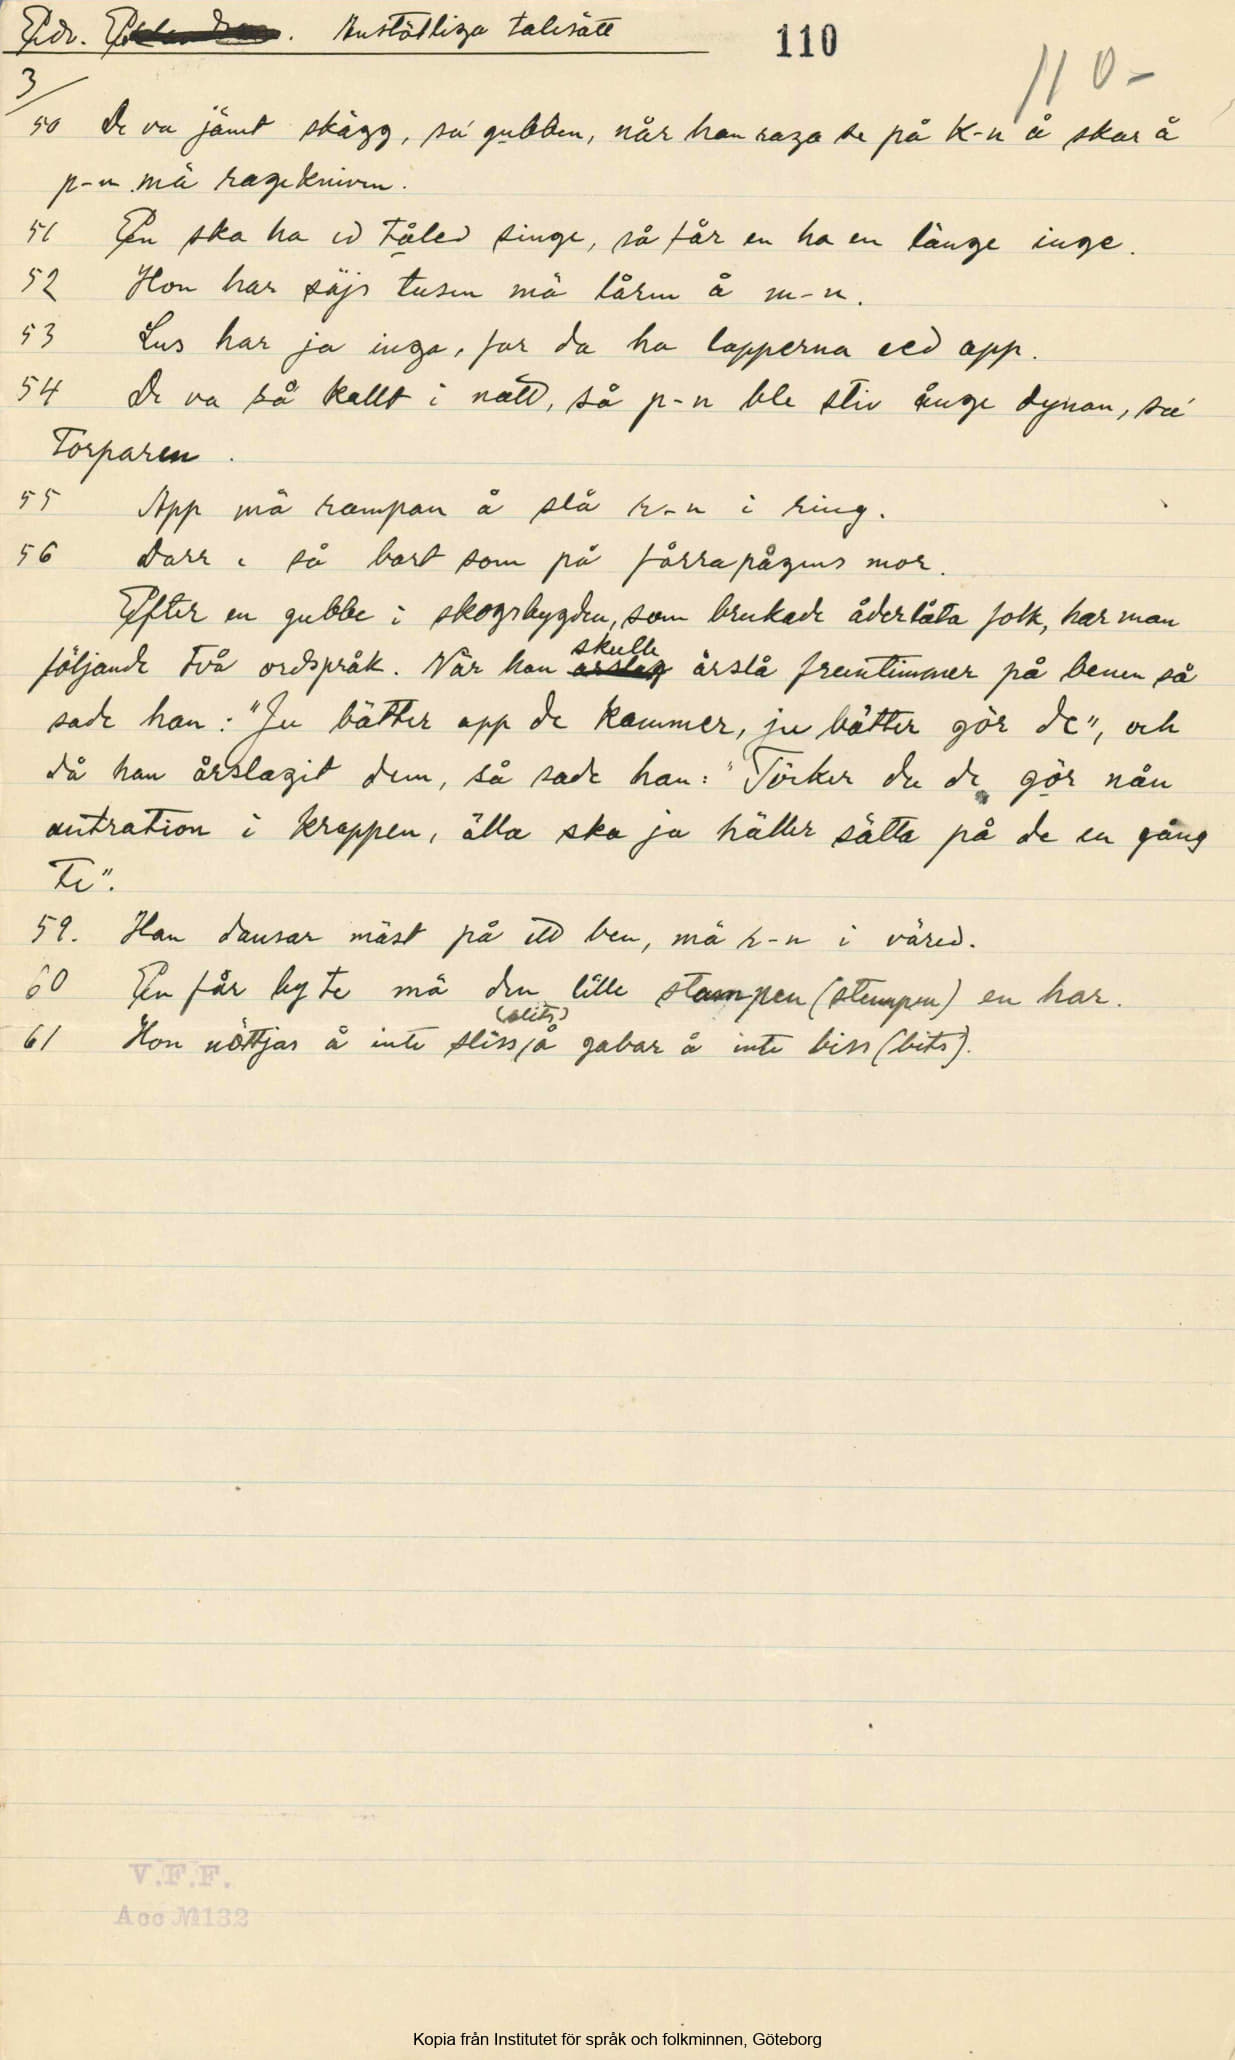 Edv. Anstötliga talesätt 110
110-
3
50 De va jämt skägg, sa' gubben, når han raga se på K-n å skar å
p-n mä ragekniven.
51 En ska ha ed tåled singe, så får en ha en länge inge.
52 Hon har säjs tusen mä lårm å m-n.
53 Lus har ja inga, for da ha lopperna eed opp.
54 De va så kallt i natt, så p-n ble stiv ånge dynan, sa'
Torparen.
55 Opp mä rompan å slå r-n i ring.
56 Darr e så bart som på fårrapågens mor.
Efter en gubbe i skogsbygden, som brukade åderlåta folk, har man
skulle
följande två ordspråk. När han årslå fruntimmer på benen så
sade han: "Ju bätter opp de kommer, ju bätter gör de", och
då han årslagit dem, så sade han: "Törker du de gör nån
autration i kroppen, älla ska ja häller sätta på de en gång
te".
59. Han dansar mäst på itt ben, mä r-n i väred.
60 En får byte mä den lille stampen (stumpen) en har.
(slits)
61 Hon nöttjas å inte sliss, å gabar å inte biss (bits).
V.F.F.
Acc № 132
Kopia från Institutet för språk och folkminnen, Göteborg